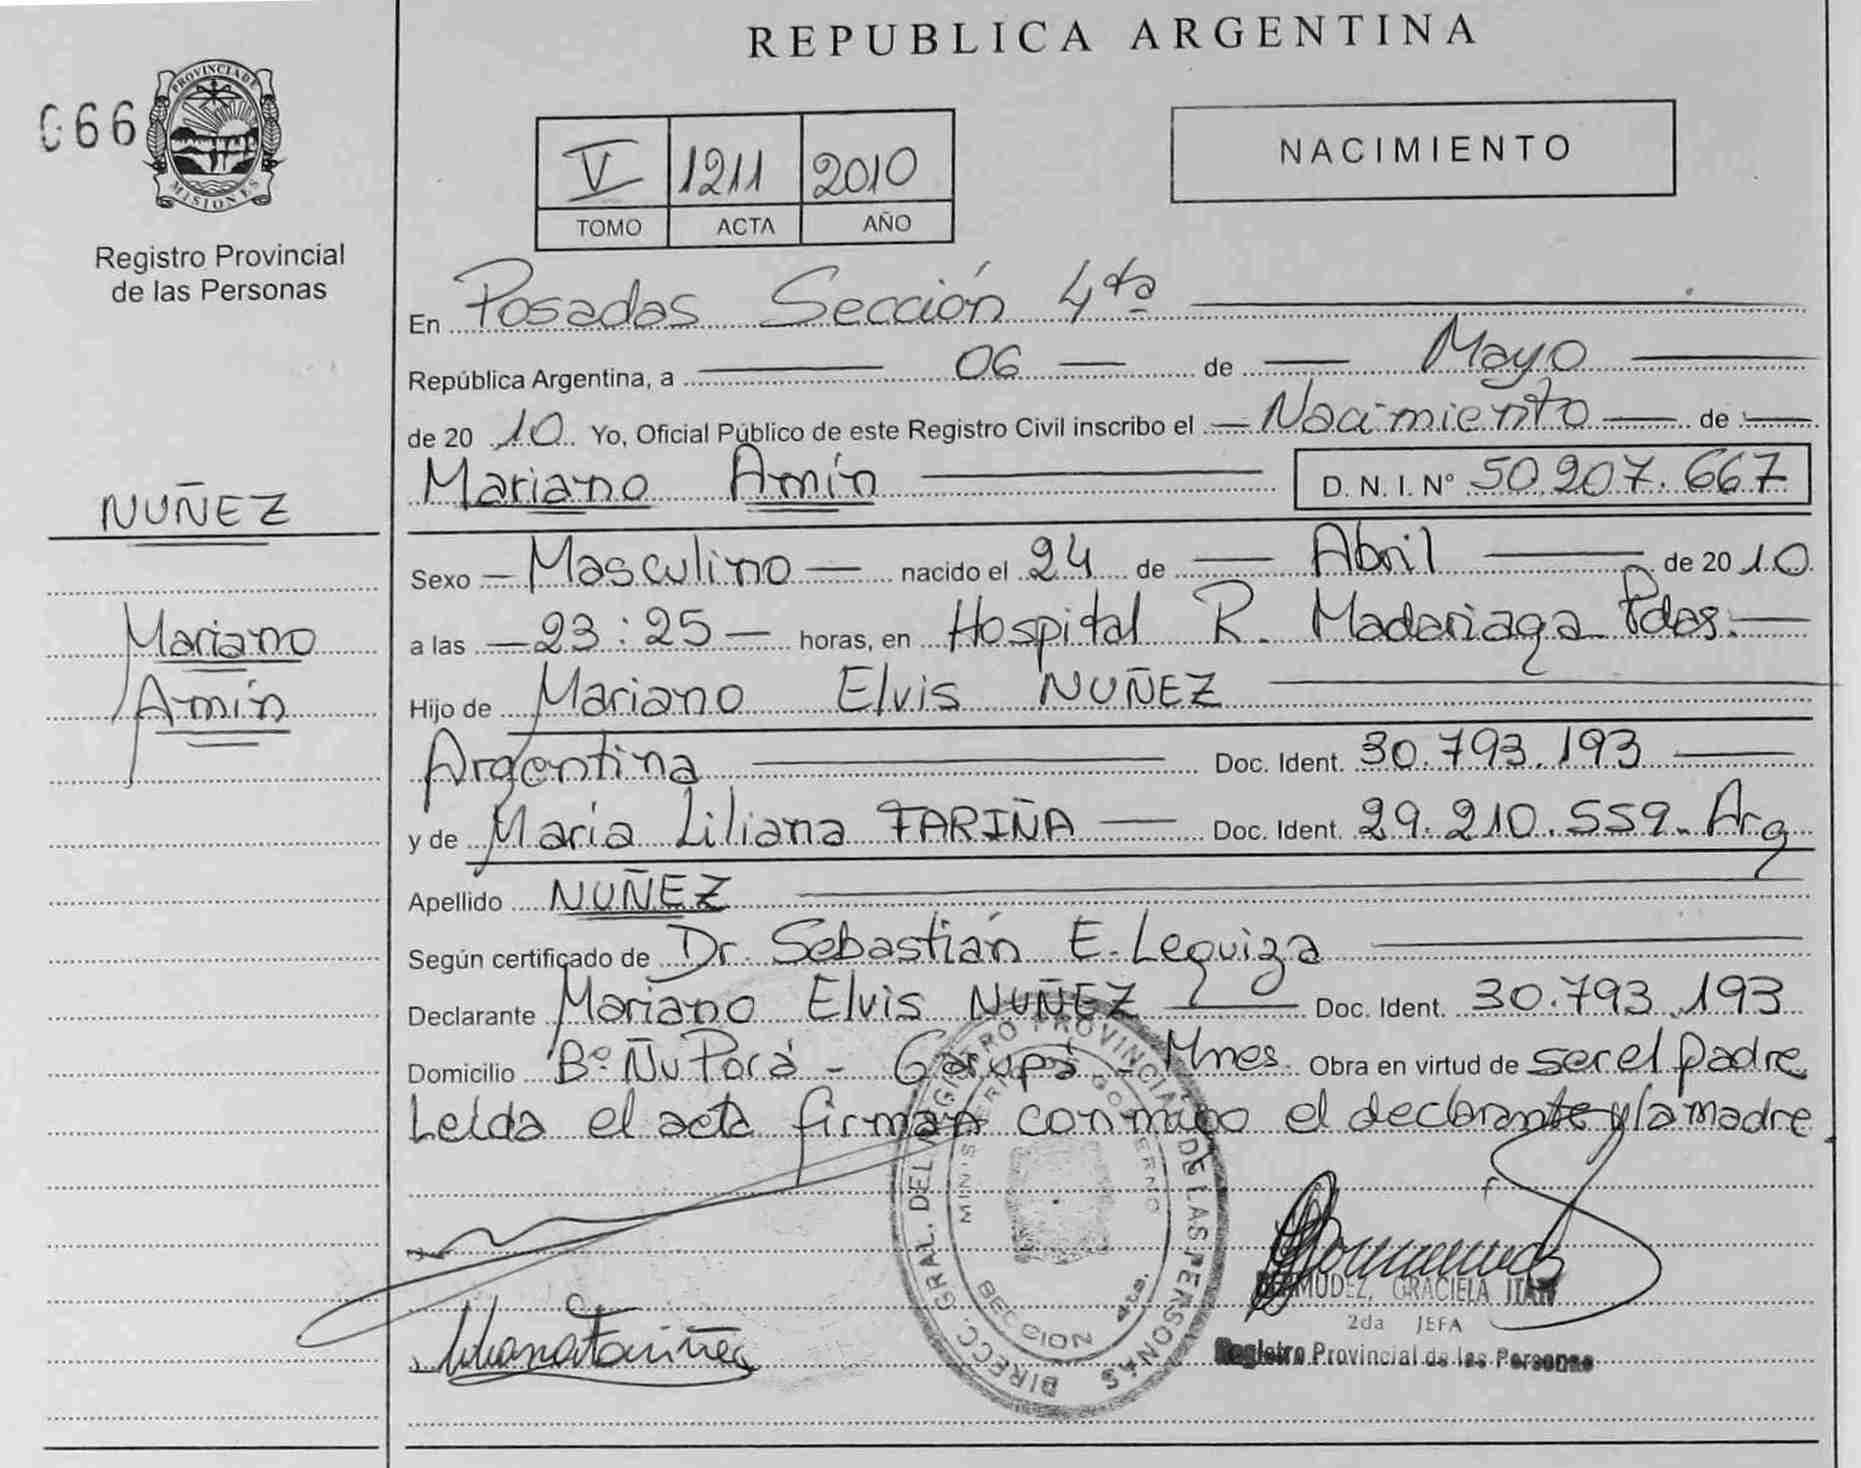 REPUBLICA ARGENTINA
066
PROVINCIA DE
MISIONES
Registro Provincial
de las Personas
V 1211 2010
TOMO ACTA AÑO
NACIMIENTO
En Posadas Sección 4ta
República Argentina, a 06 de Mayo
de 2010 Yo, Oficial Público de este Registro Civil inscribo el Nacimiento de
Mariano Amín D. N. I. Nº 50.907.667
NUÑEZ
Mariano
Amín
Sexo Masculino nacido el 24 de Abril de 2010
a las 23:25 horas, en Hospital R. Madariaga Pdas.
Hijo de Mariano Elvis NUÑEZ
Argentina Doc. Ident. 30.793.193
y de María Liliana FARIÑA Doc. Ident. 29.210.559. Arg
Apellido NUÑEZ
Según certificado de Dr. Sebastián E. Leguiza
Declarante Mariano Elvis NUÑEZ Doc. Ident. 30.793.193
Domicilio Bº Ñu Porá - Garupá - Mnes. Obra en virtud de ser el padre
Leída el acta firman conmigo el declarante y la madre.
DIRECC. GRAL. DEL REGISTRO PROVINCIAL DE LAS PERSONAS
MINISTERIO GOBIERNO
SECCION 4ta.
Liliana Fariña
BERMUDEZ, GRACIELA ITATI
2da JEFA
Registro Provincial de las Personas